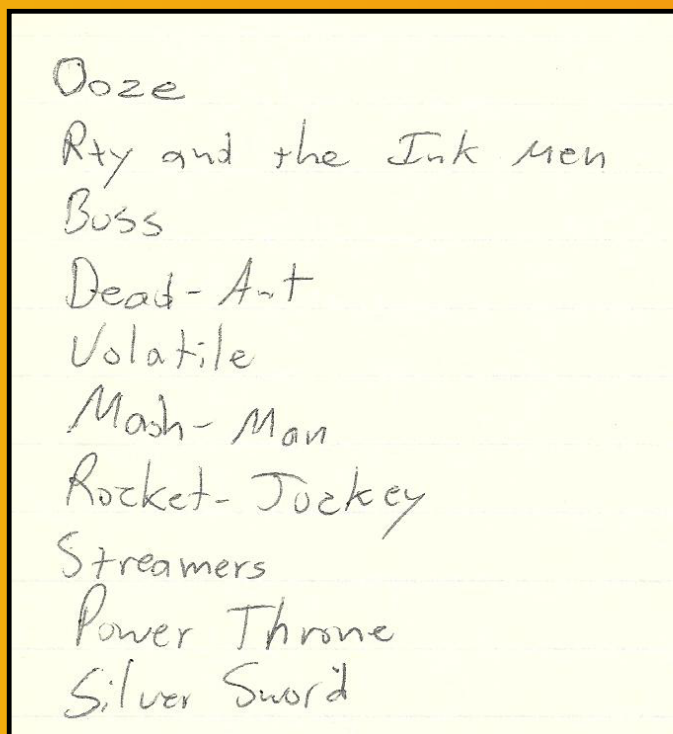 Ooze
Rty and the Ink Men
Boss
Dead-Ant
Volatile
Mash-Man
Rocket-Jockey
Streamers
Power Throne
Silver Sword